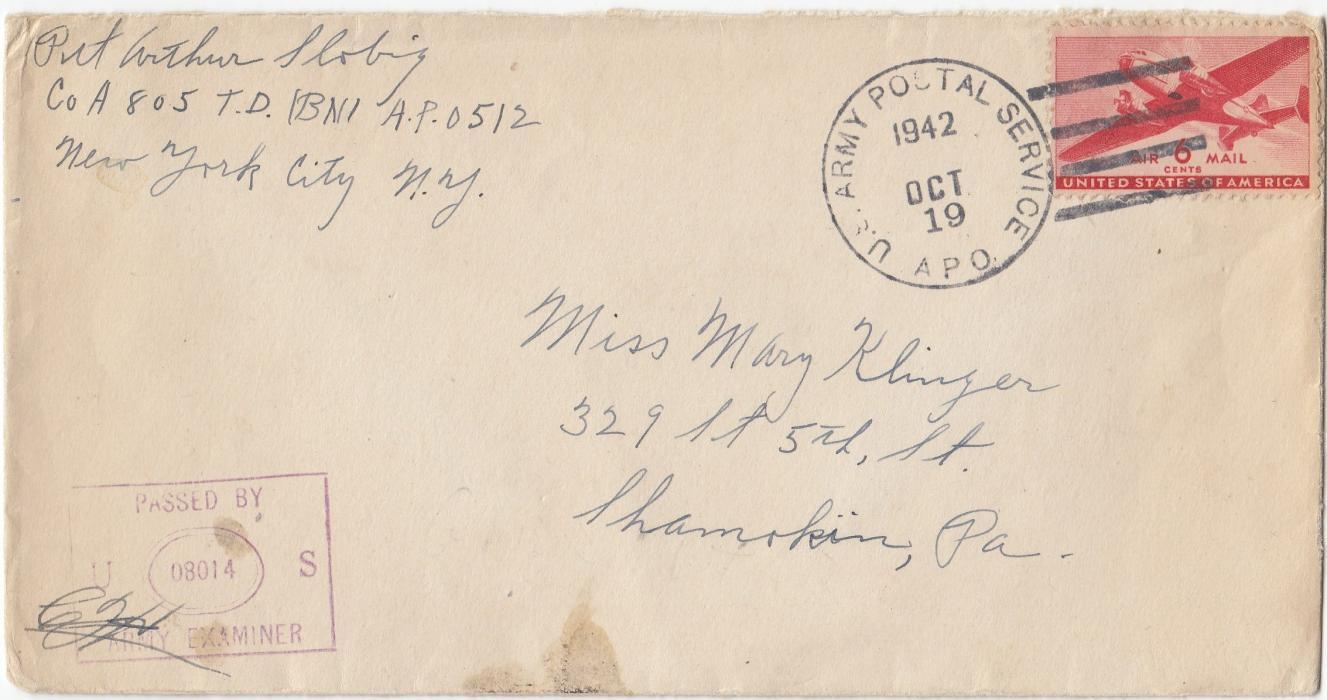 Pvt Arthur Slobig
Co A 805 T.D. (BN) A.P.O 512
New York City N.Y.
U.S. ARMY POSTAL SERVICE
1942
OCT
19
A.P.O.
AIR 6 MAIL
CENTS
UNITED STATES OF AMERICA
Miss Mary Klinger
329 St 5th, St.
Shamokin, Pa.
PASSED BY
U 08014 S
ARMY EXAMINER